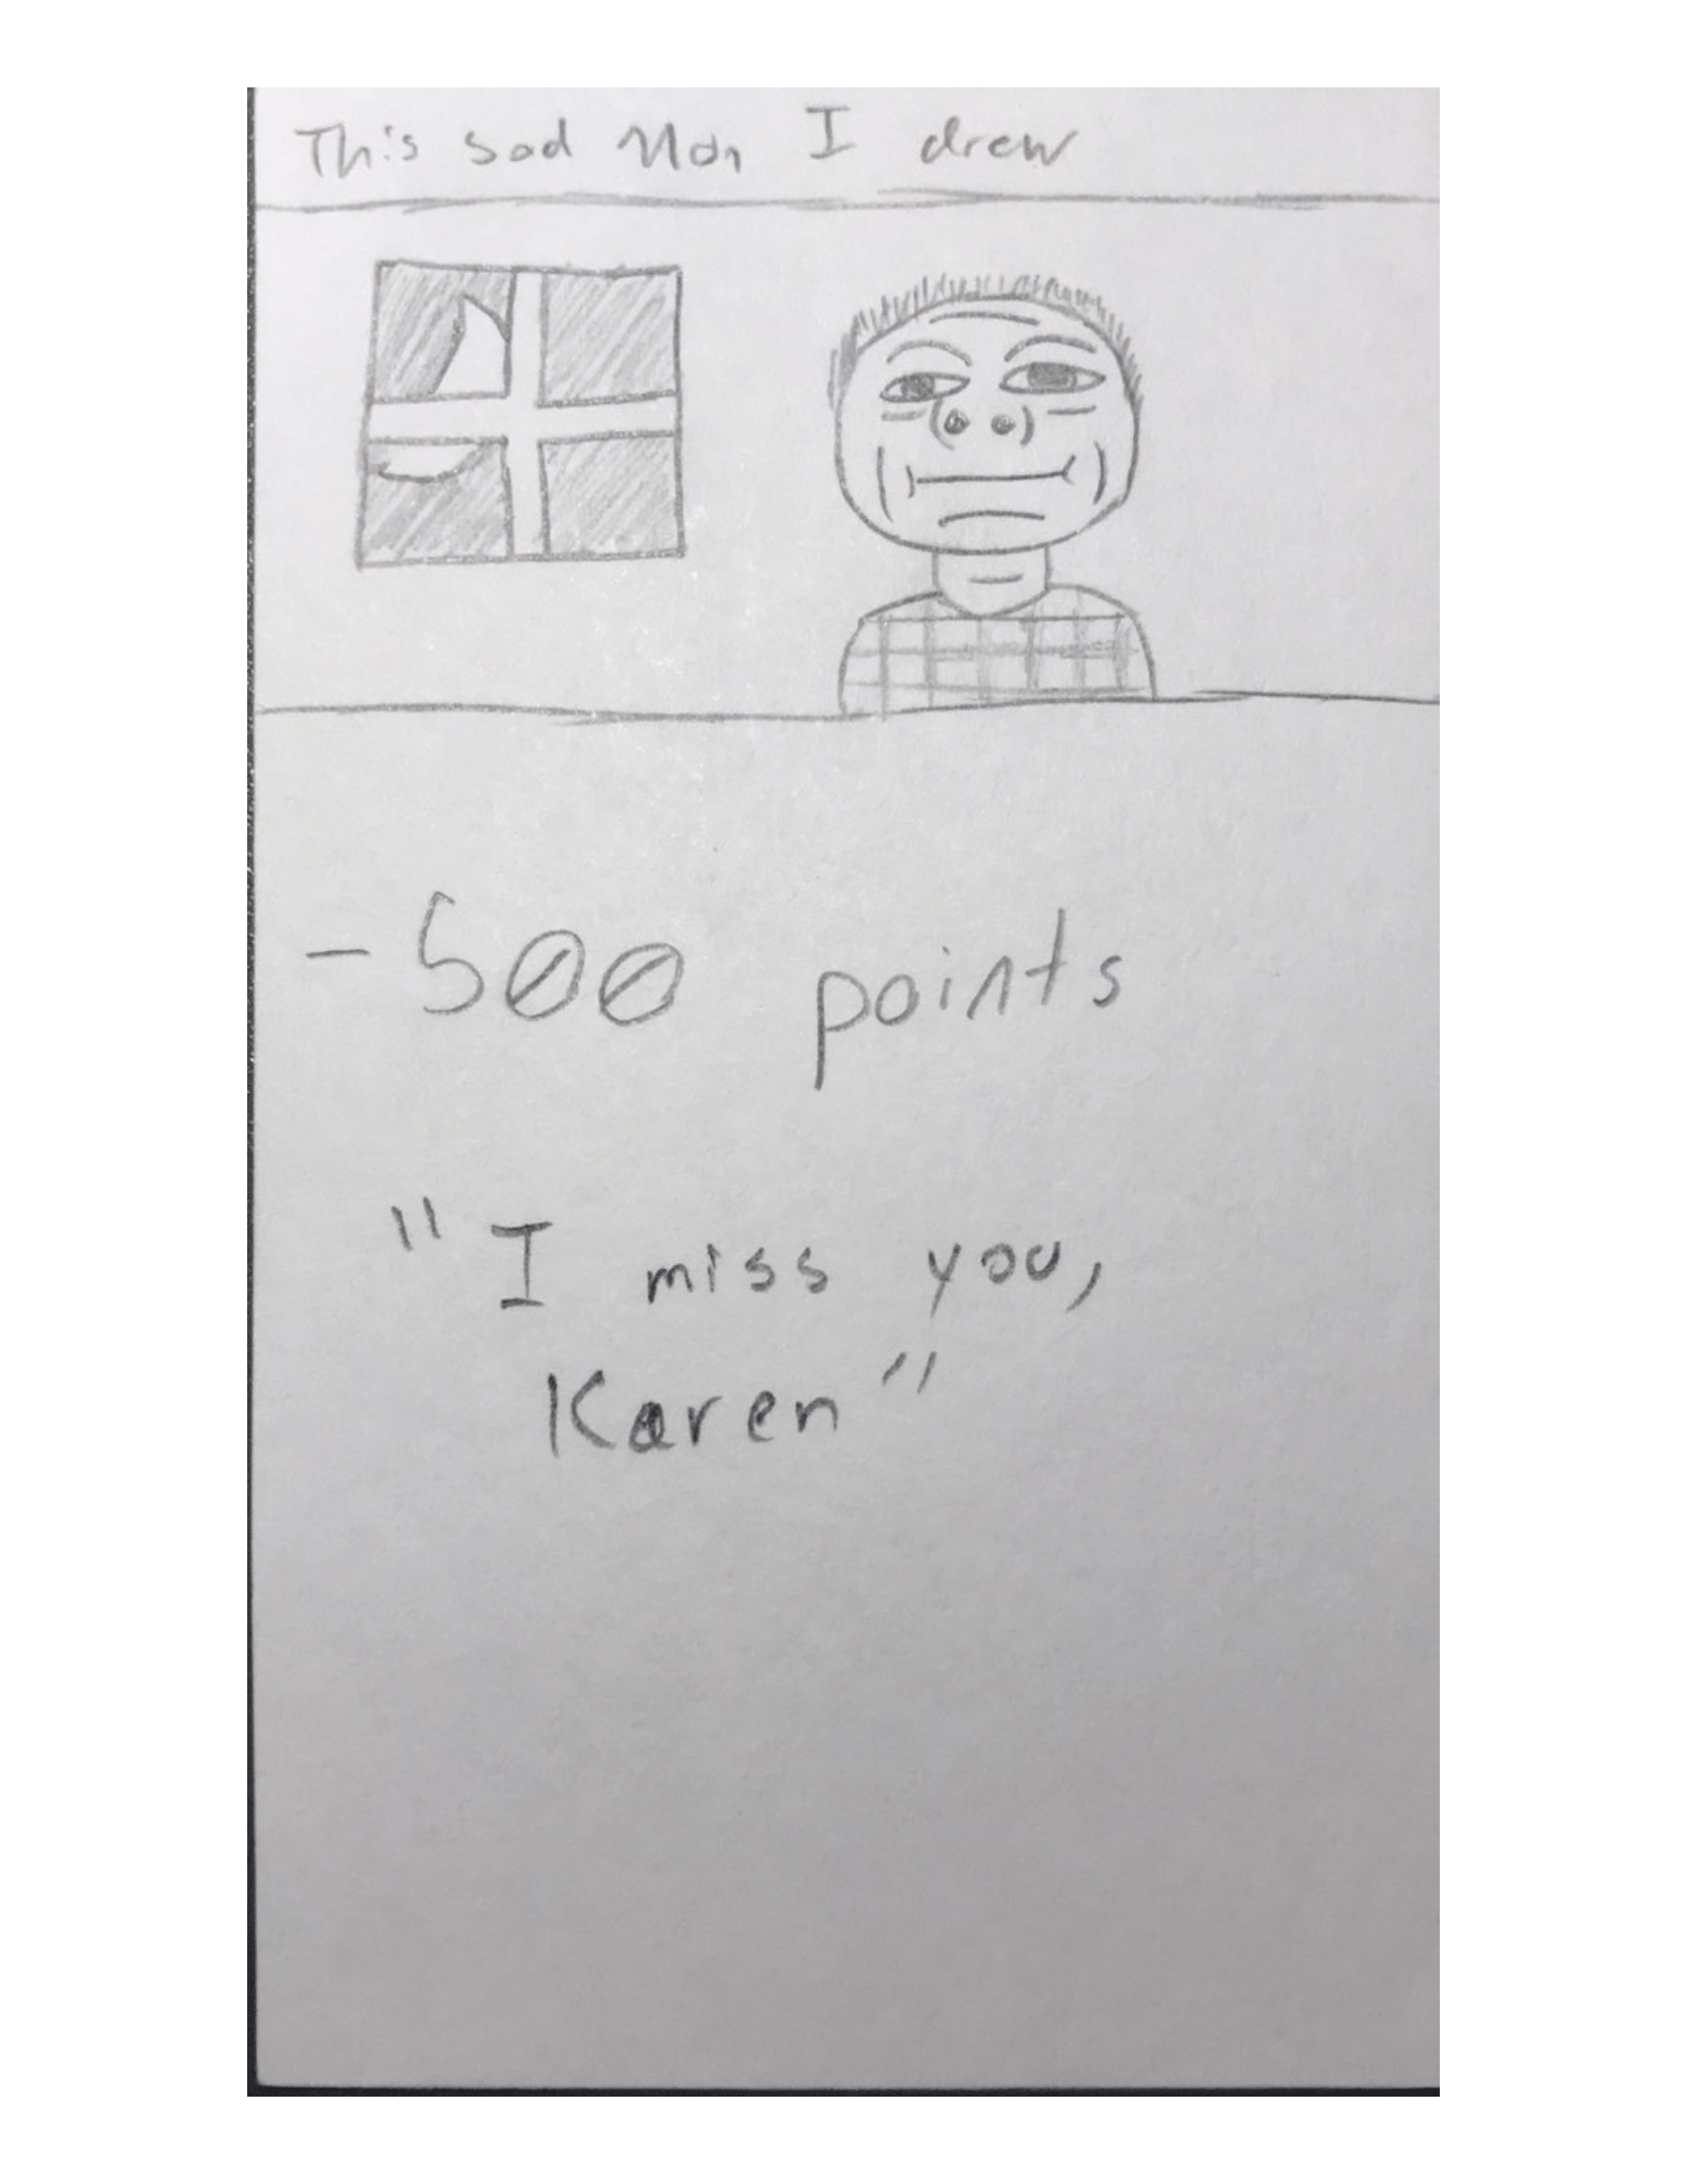 This sad Man I drew
-500 points
"I miss you,
Karen"